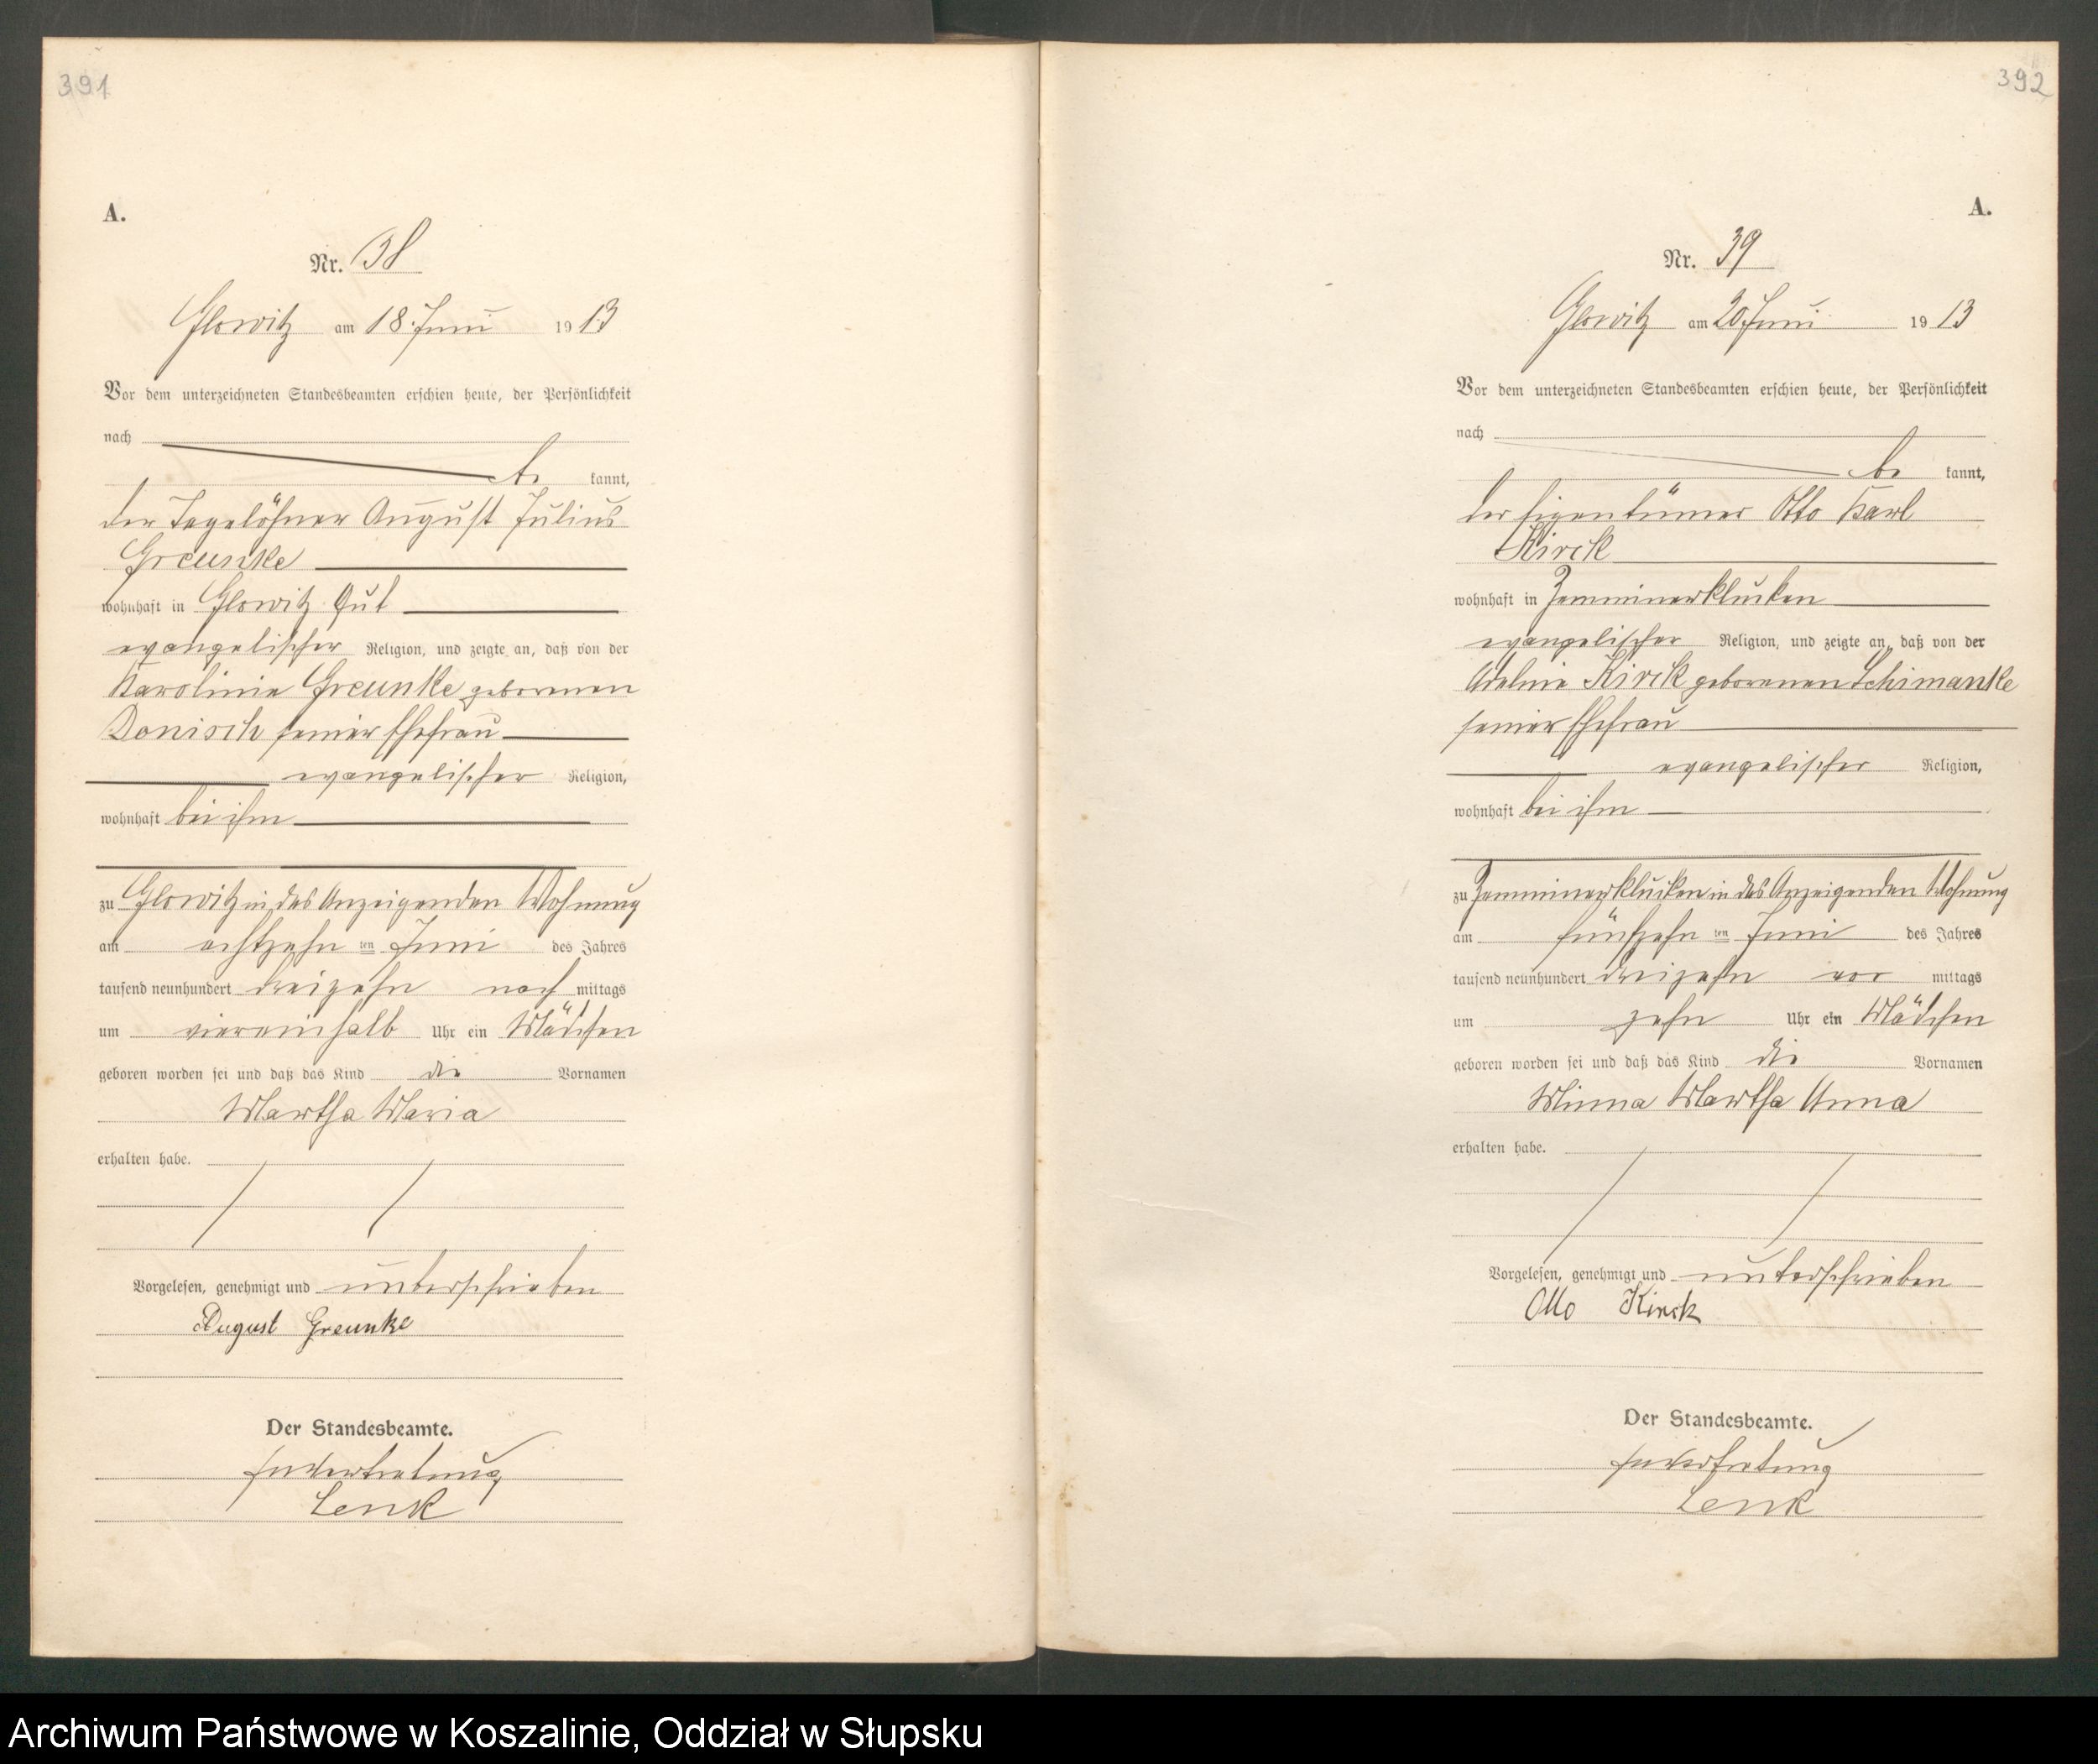 391
A.
Nr. 38
Glowitz am 18. Juni 1913
Vor dem unterzeichneten Standesbeamten erschien heute, der Persönlichkeit
nach
be kannt,
der Tagelöhner August Julius
Greunke
wohnhaft in Glowitz Gut
evangelischer Religion, und zeigte an, daß von der
Karoline Greunke geborenen
Donisch seiner Ehefrau
evangelischer Religion,
wohnhaft bei ihm
zu Glowitz in des Anzeigenden Wohnung
am achtzehn ten Juni des Jahres
tausend neunhundert dreizehn nach mittags
um viereinhalb Uhr ein Mädchen
geboren worden sei und daß das Kind die Vornamen
Martha Maria
erhalten habe.
Vorgelesen, genehmigt und unterschrieben
August Greunke
Der Standesbeamte.
In Vertretung
Lenk
392
A.
Nr. 39
Glowitz am 20. Juni 1913
Vor dem unterzeichneten Standesbeamten erschien heute, der Persönlichkeit
nach
be kannt,
der Eigentümer Otto Karl
Kirck
wohnhaft in Zemminerklucken
evangelischer Religion, und zeigte an, daß von der
Adeline Kirck geborenen Schimanke
seiner Ehefrau
evangelischer Religion,
wohnhaft bei ihm
zu Zemminerklucken in des Anzeigenden Wohnung
am fünfzehn ten Juni des Jahres
tausend neunhundert dreizehn vor mittags
um zehn Uhr ein Mädchen
geboren worden sei und daß das Kind die Vornamen
Minna Martha Anna
erhalten habe.
Vorgelesen, genehmigt und unterschrieben
Otto Kirck
Der Standesbeamte.
In Vertretung
Lenk
Archiwum Państwowe w Koszalinie, Oddział w Słupsku